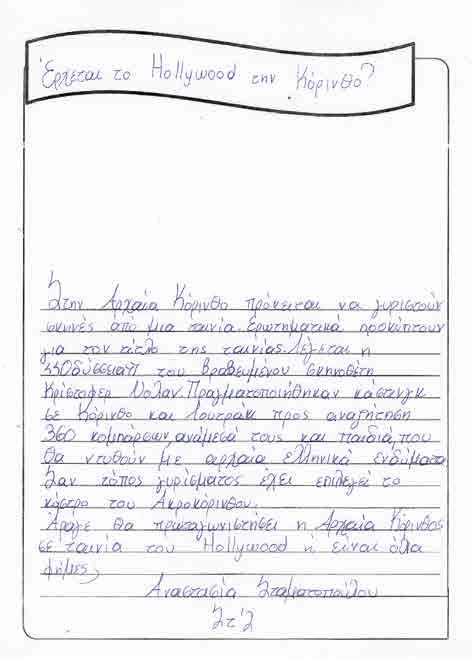 Έρχεται το Hollywood την Κόρινθο?
Στην Αρχαία Κόρινθο πρόκειται να γυριστούν
σκηνές από μια ταινία. Ερωτηματικά προκύπτουν
για τον τίτλο της ταινίας. Λέγεται η
<<Οδύσσεια>> του βραβευμένου σκηνοθέτη
Κρίστοφερ Νόλαν. Πραγματοποιήθηκαν κάστινγκ
σε Κόρινθο και Λουτράκι προς αναζήτηση
360 κομπάρσων, ανάμεσά τους και παιδιά, που
θα ντυθούν με αρχαία ελληνικά ενδύματα.
Σαν τόπος γυρίσματος έχει επιλεγεί το
κάστρο του Ακροκόρινθου.
Άραγε θα πρωταγωνιστήσει η Αρχαία Κόρινθος
σε ταινία του Hollywood ή είναι όλα
φήμες;
Αναστασία Σταματοπούλου
Στ'2